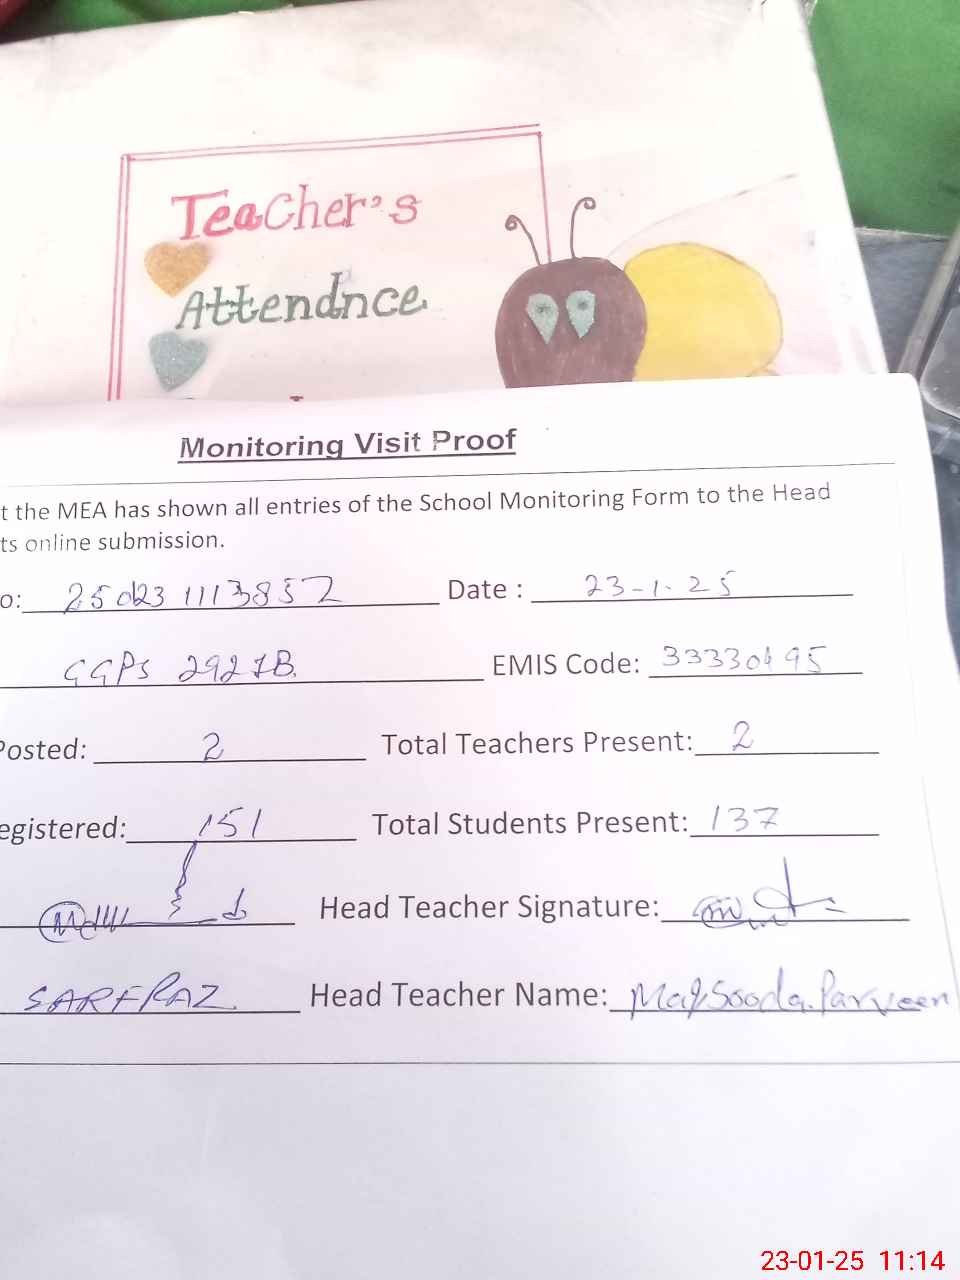 Teacher's
Attendnce
Monitoring Visit Proof
t the MEA has shown all entries of the School Monitoring Form to the Head
ts online submission.
o: 250123 1113857 Date : 23-1-25
GGPS 292 1B. EMIS Code: 33330495
Posted: 2 Total Teachers Present: 2
egistered: 151 Total Students Present: 137
Head Teacher Signature:
SARFRAZ Head Teacher Name: Maqsooda.Parveen
23-01-25 11:14